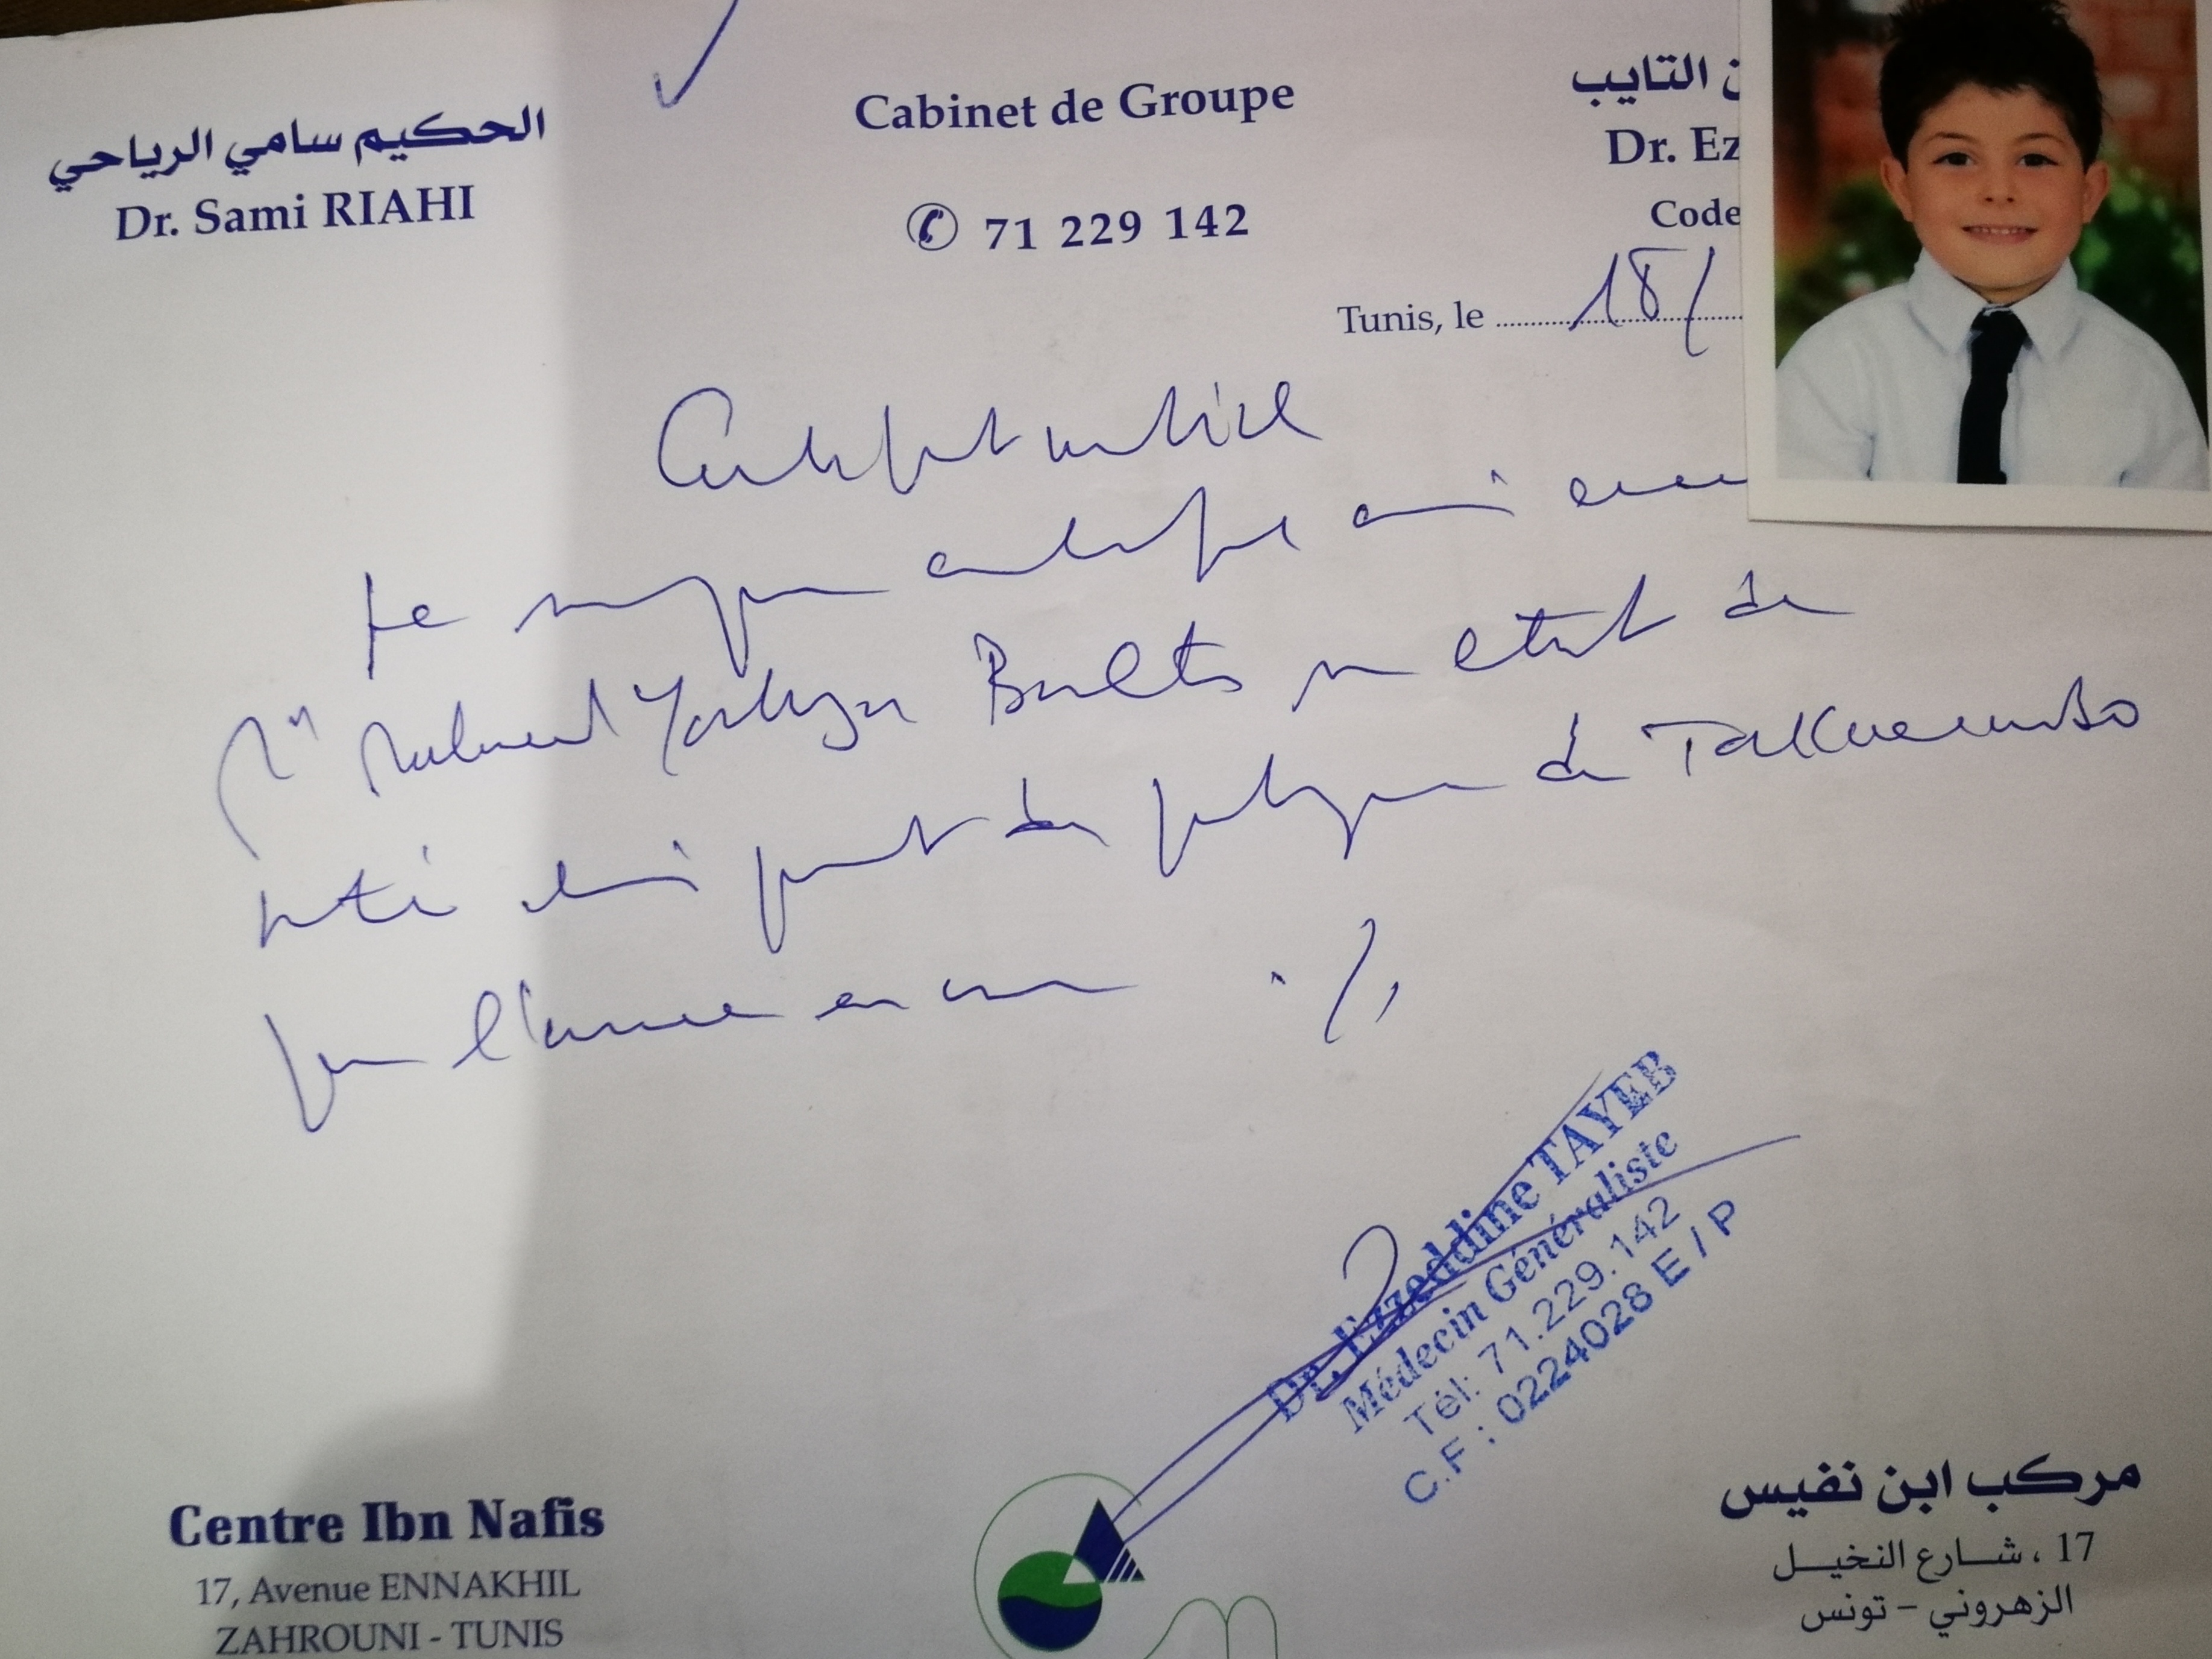 الحكيم سامي الرياحي
Dr. Sami RIAHI
Cabinet de Groupe
71 229 142
ن التايب
Dr. Ez
Code
Tunis, le 18/
Certificat médical
Je soussigné certifie avoir exam
Mohamed Yahya en état de
santé lui permet de pratiquer du Taekwondo
pour l'année en cours ./,
Dr. Ezzeddine TAYEB
Médecin Généraliste
Tél: 71.229.142
C.F : 0224028 E / P
Centre Ibn Nafis
17, Avenue ENNAKHIL
ZAHROUNI - TUNIS
مركب ابن نفيس
17 ، شارع النخيل
الزهروني - تونس